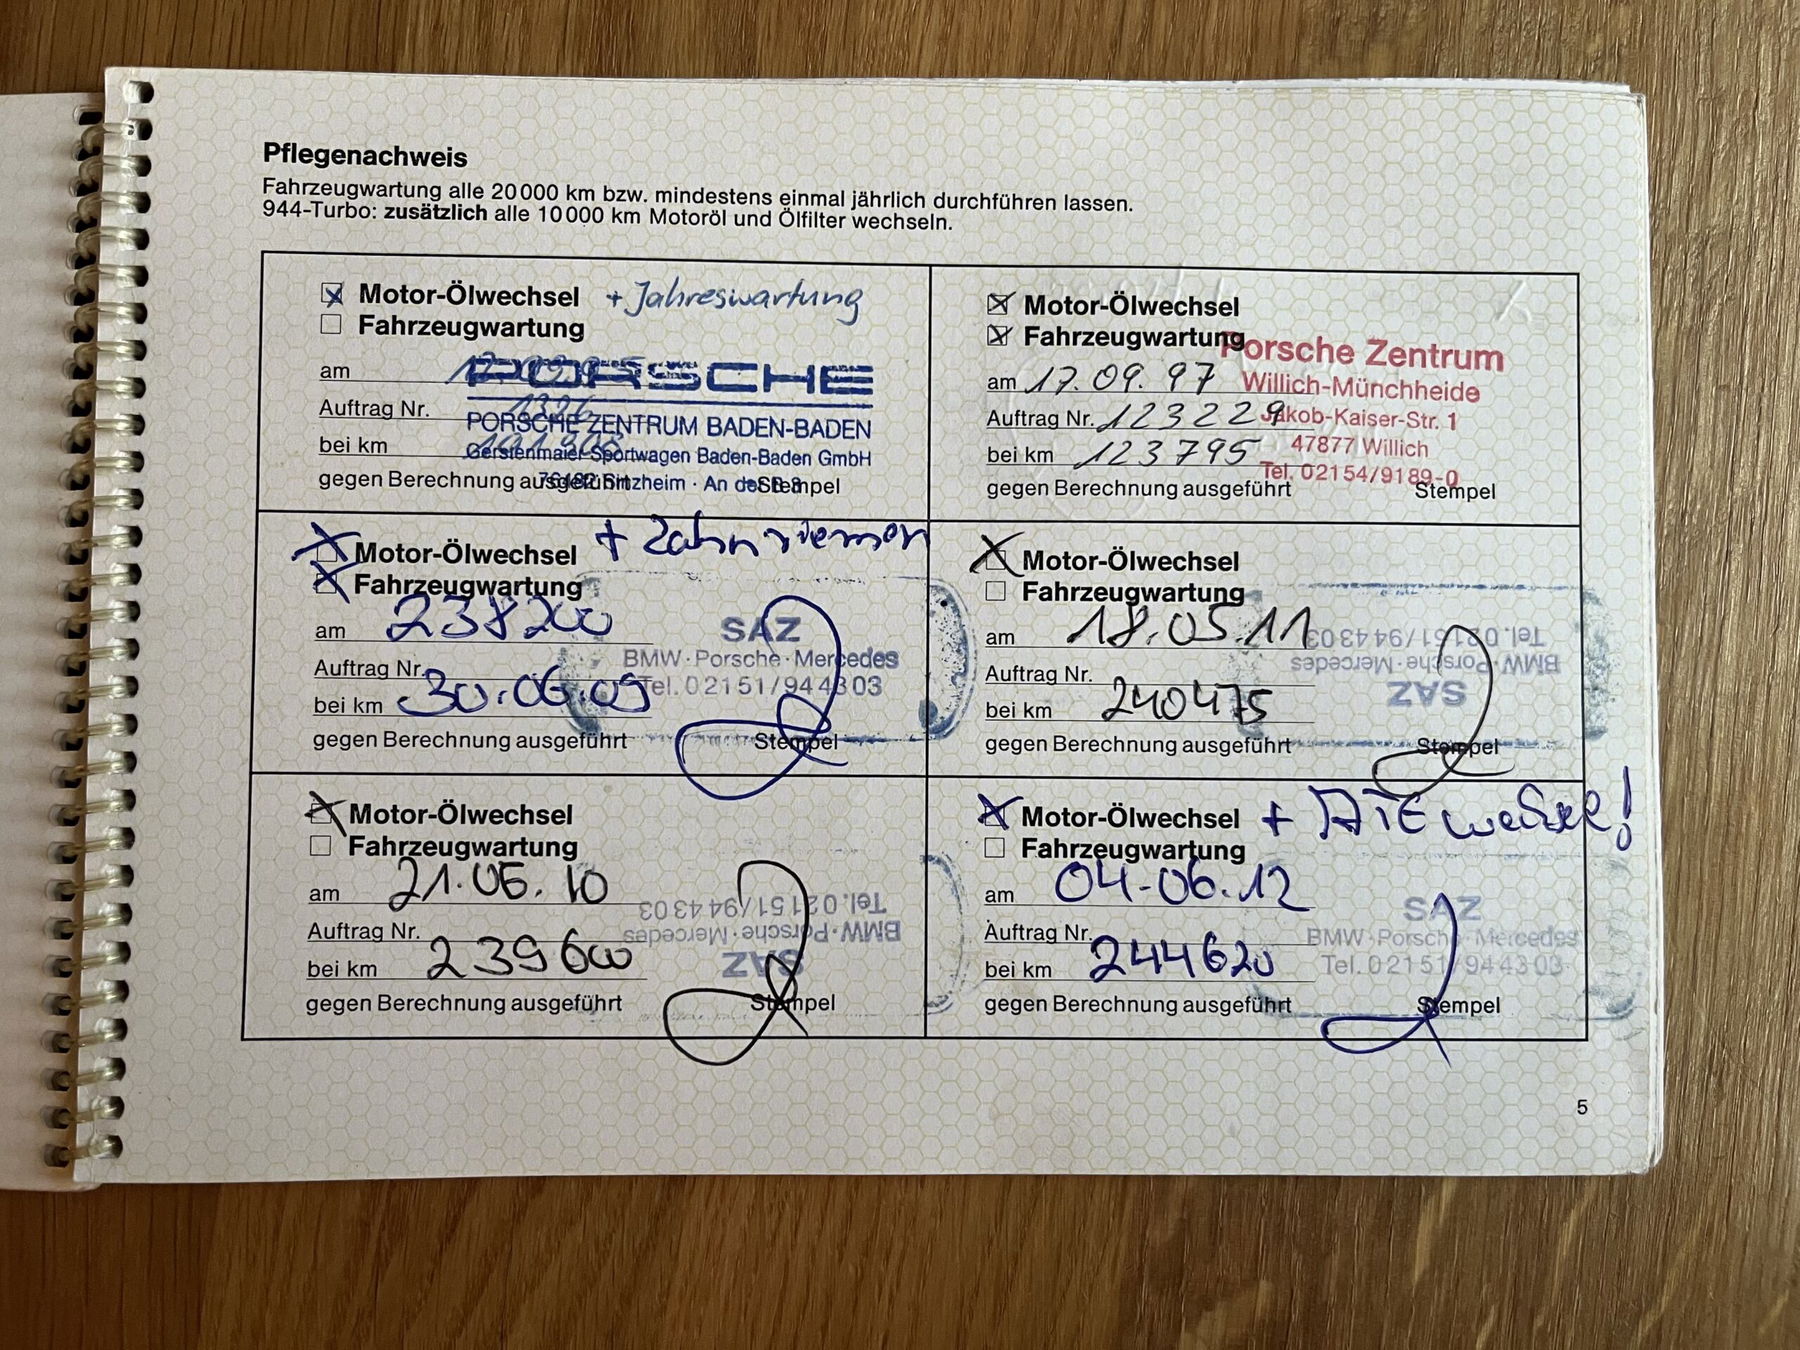 Pflegenachweis
Fahrzeugwartung alle 20 000 km bzw. mindestens einmal jährlich durchführen lassen.
944-Turbo: zusätzlich alle 10 000 km Motoröl und Ölfilter wechseln.
Motor-Ölwechsel + Jahreswartung
Fahrzeugwartung
PORSCHE
am
Auftrag Nr. 1326
PORSCHE ZENTRUM BADEN-BADEN
bei km
Gerstenmaier Sportwagen Baden-Baden GmbH
gegen Berechnung ausgeführt Stempel
Sinzheim · An der B 3
Motor-Ölwechsel
Fahrzeugwartung
Porsche Zentrum
am 17.09.97
Willich-Münchheide
Auftrag Nr. 123229
Jakob-Kaiser-Str. 1
47877 Willich
bei km 123795
Tel. 02154/9189-0
gegen Berechnung ausgeführt Stempel
Motor-Ölwechsel + Zahnriemen
Fahrzeugwartung
am 238200
SAZ
BMW · Porsche · Mercedes
Auftrag Nr.
Tel. 0 21 51 / 94 43 03
bei km 30.06.09
gegen Berechnung ausgeführt Stempel
Motor-Ölwechsel
Fahrzeugwartung
am 18.05.11
Tel. 0 21 51 / 94 43 03
BMW · Porsche · Mercedes
Auftrag Nr.
SAZ
bei km 240475
gegen Berechnung ausgeführt Stempel
Motor-Ölwechsel
Fahrzeugwartung
am 21.06.10
Tel. 0 21 51 / 94 43 03
Auftrag Nr.
BMW · Porsche · Mercedes
SAZ
bei km 239600
gegen Berechnung ausgeführt Stempel
Motor-Ölwechsel + ATE wechsel!
Fahrzeugwartung
am 04.06.12
SAZ
Auftrag Nr.
BMW · Porsche · Mercedes
Tel. 0 21 51 / 94 43 03
bei km 244620
gegen Berechnung ausgeführt Stempel
5